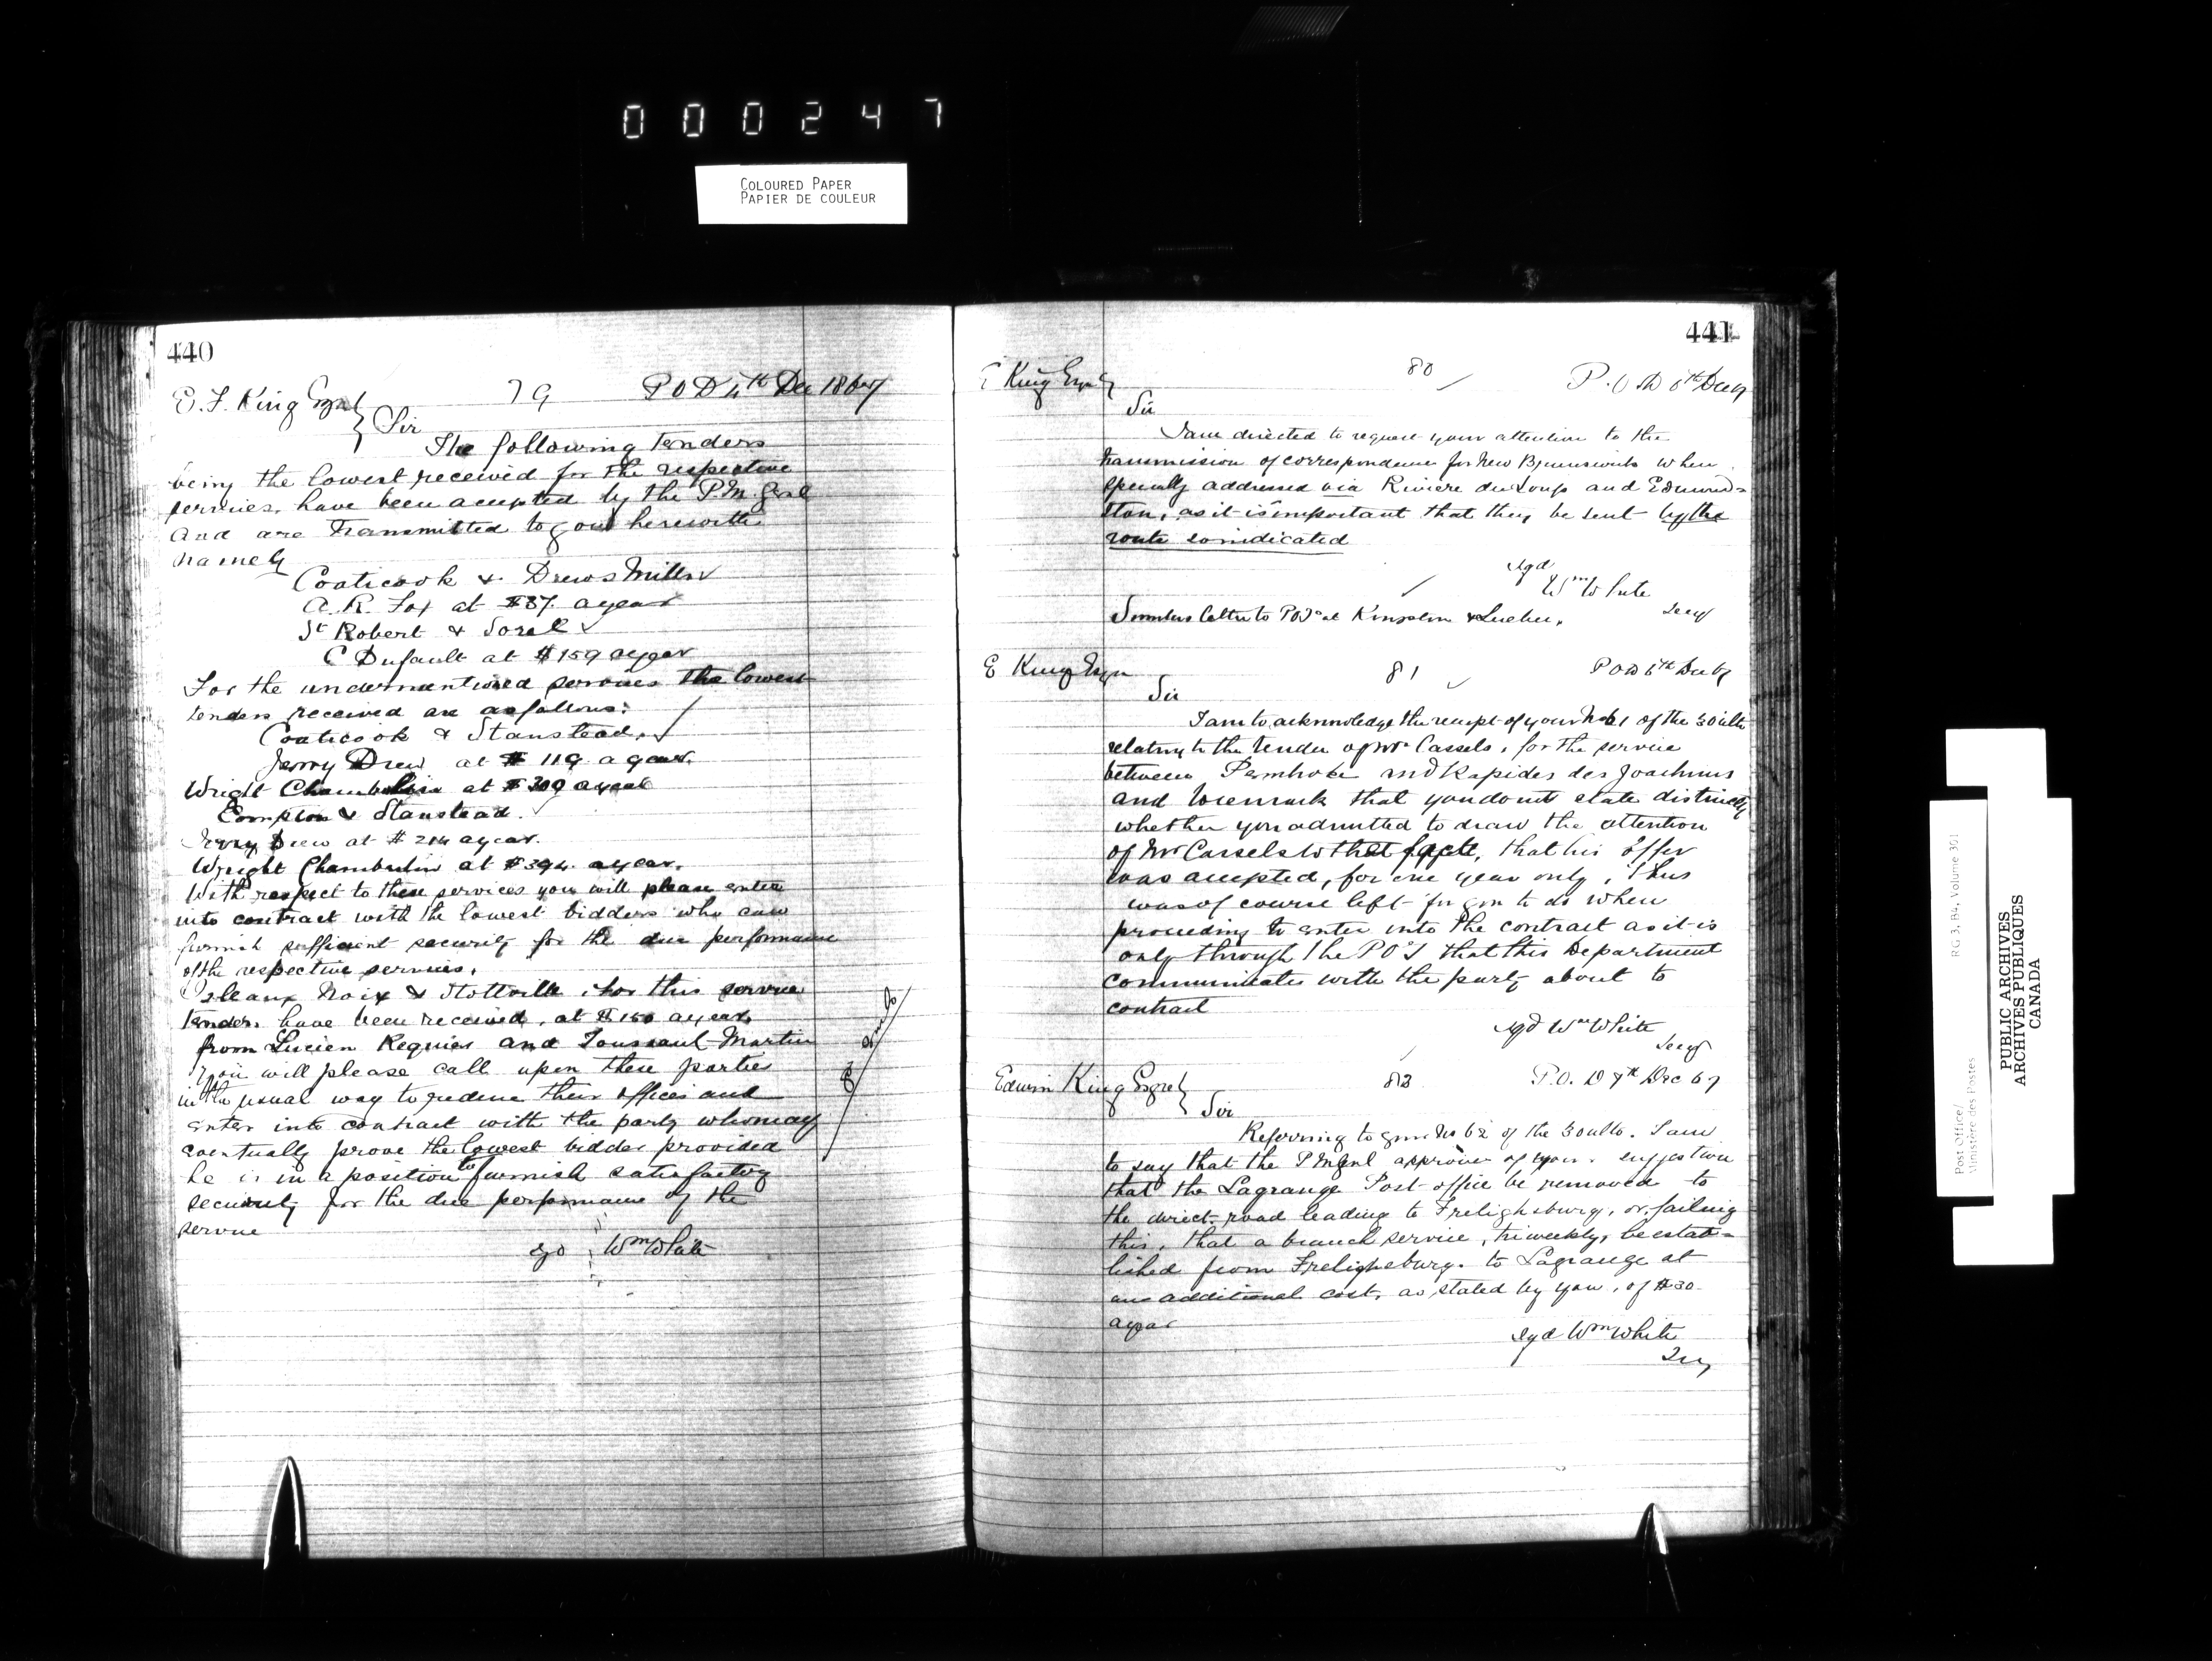 000247
COLOURED PAPER
PAPIER DE COULEUR
440
E. F. King Esqr 79 P O D 4th Dec 1867
Sir
The following tenders
being the lowest received for the respective
services, have been accepted by the P.M. Genl
and are transmitted to you herewith
namely
Coaticook & Drews Mills
A. R. Fox at $37. a year
St Robert & Sorel
C Dufault at $159 a year
For the undermentioned services the lowest
tenders received are as follows:
Coaticook & Stanstead.
Jerry Drew at $119 a year.
Wright Chamberlin at $300 a year
Compton & Stanstead.
Jerry Drew at $214 a year.
Wright Chamberlin at $394. a year.
With respect to these services you will please enter
into contract with the lowest bidders who can
furnish sufficient security for the due performance
of the respective services.
Isleaux Noix & Stottville, for this service
tenders have been received, at $150 a year
from Lucien Requier and Toussaint Martin
You will please call upon these parties
in the usual way to reduce their offices and
enter into contract with the party who may
eventually prove the lowest bidder provided
he is in a position to furnish satisfactory
security for the due performance of the
service
sgd Wm White
441
E King Esqr 80 P.O.D 6th Dec 67
Sir
I am directed to request your attention to the
transmission of correspondence for New Brunswick when
specially addressed via Riviere du Loup and Edmund=
ston, as it is important that they be sent by the
route so indicated
sgd
Wm White
Secy
Similar letter to POIs at Kingston & Quebec.
E King Esqr 81 P O D 6th Dec 67
Sir
I am to acknowledge the receipt of your No 61 of the 30 ulto
relating to the tender of Mr Cassels, for the service
between Pembroke and Rapides des Joachims
and to remark that you do not state distinctly
whether you admitted to draw the attention
of Mr Cassels to that facts, that his offer
was accepted, for one year only, Thus
was of course left for you to do when
proceeding to enter into the contract as it is
only through the POI that this Department
communicates with the party about to
contract
sgd Wm White
Secy
Edwin King Esqre 82 P.O. D 7th Dec 67
Sir
Referring to your No 62 of the 30 ulto. I am
to say that the P M Genl approves of your suggestion
that the Lagrange Post office be removed to
the direct road leading to Frelighsburg, or, failing
this, that a branch service, triweekly, be estab=
lished from Frelighsburg. to Lagrange at
an additional cost, as stated by you, of $30.
a year
sgd Wm White
Secy
RG 3, B4, Volume 301
Post Office/
Ministère des Postes
PUBLIC ARCHIVES
ARCHIVES PUBLIQUES
CANADA